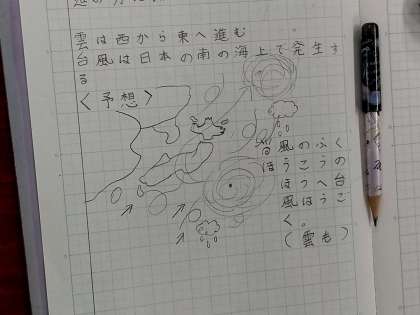 雲は西から東へ進む
台風は日本の南の海上で発生す
る
<予想>
風のふく
ほうこうの
ほうへ台
風はうご
く。
(雲も)